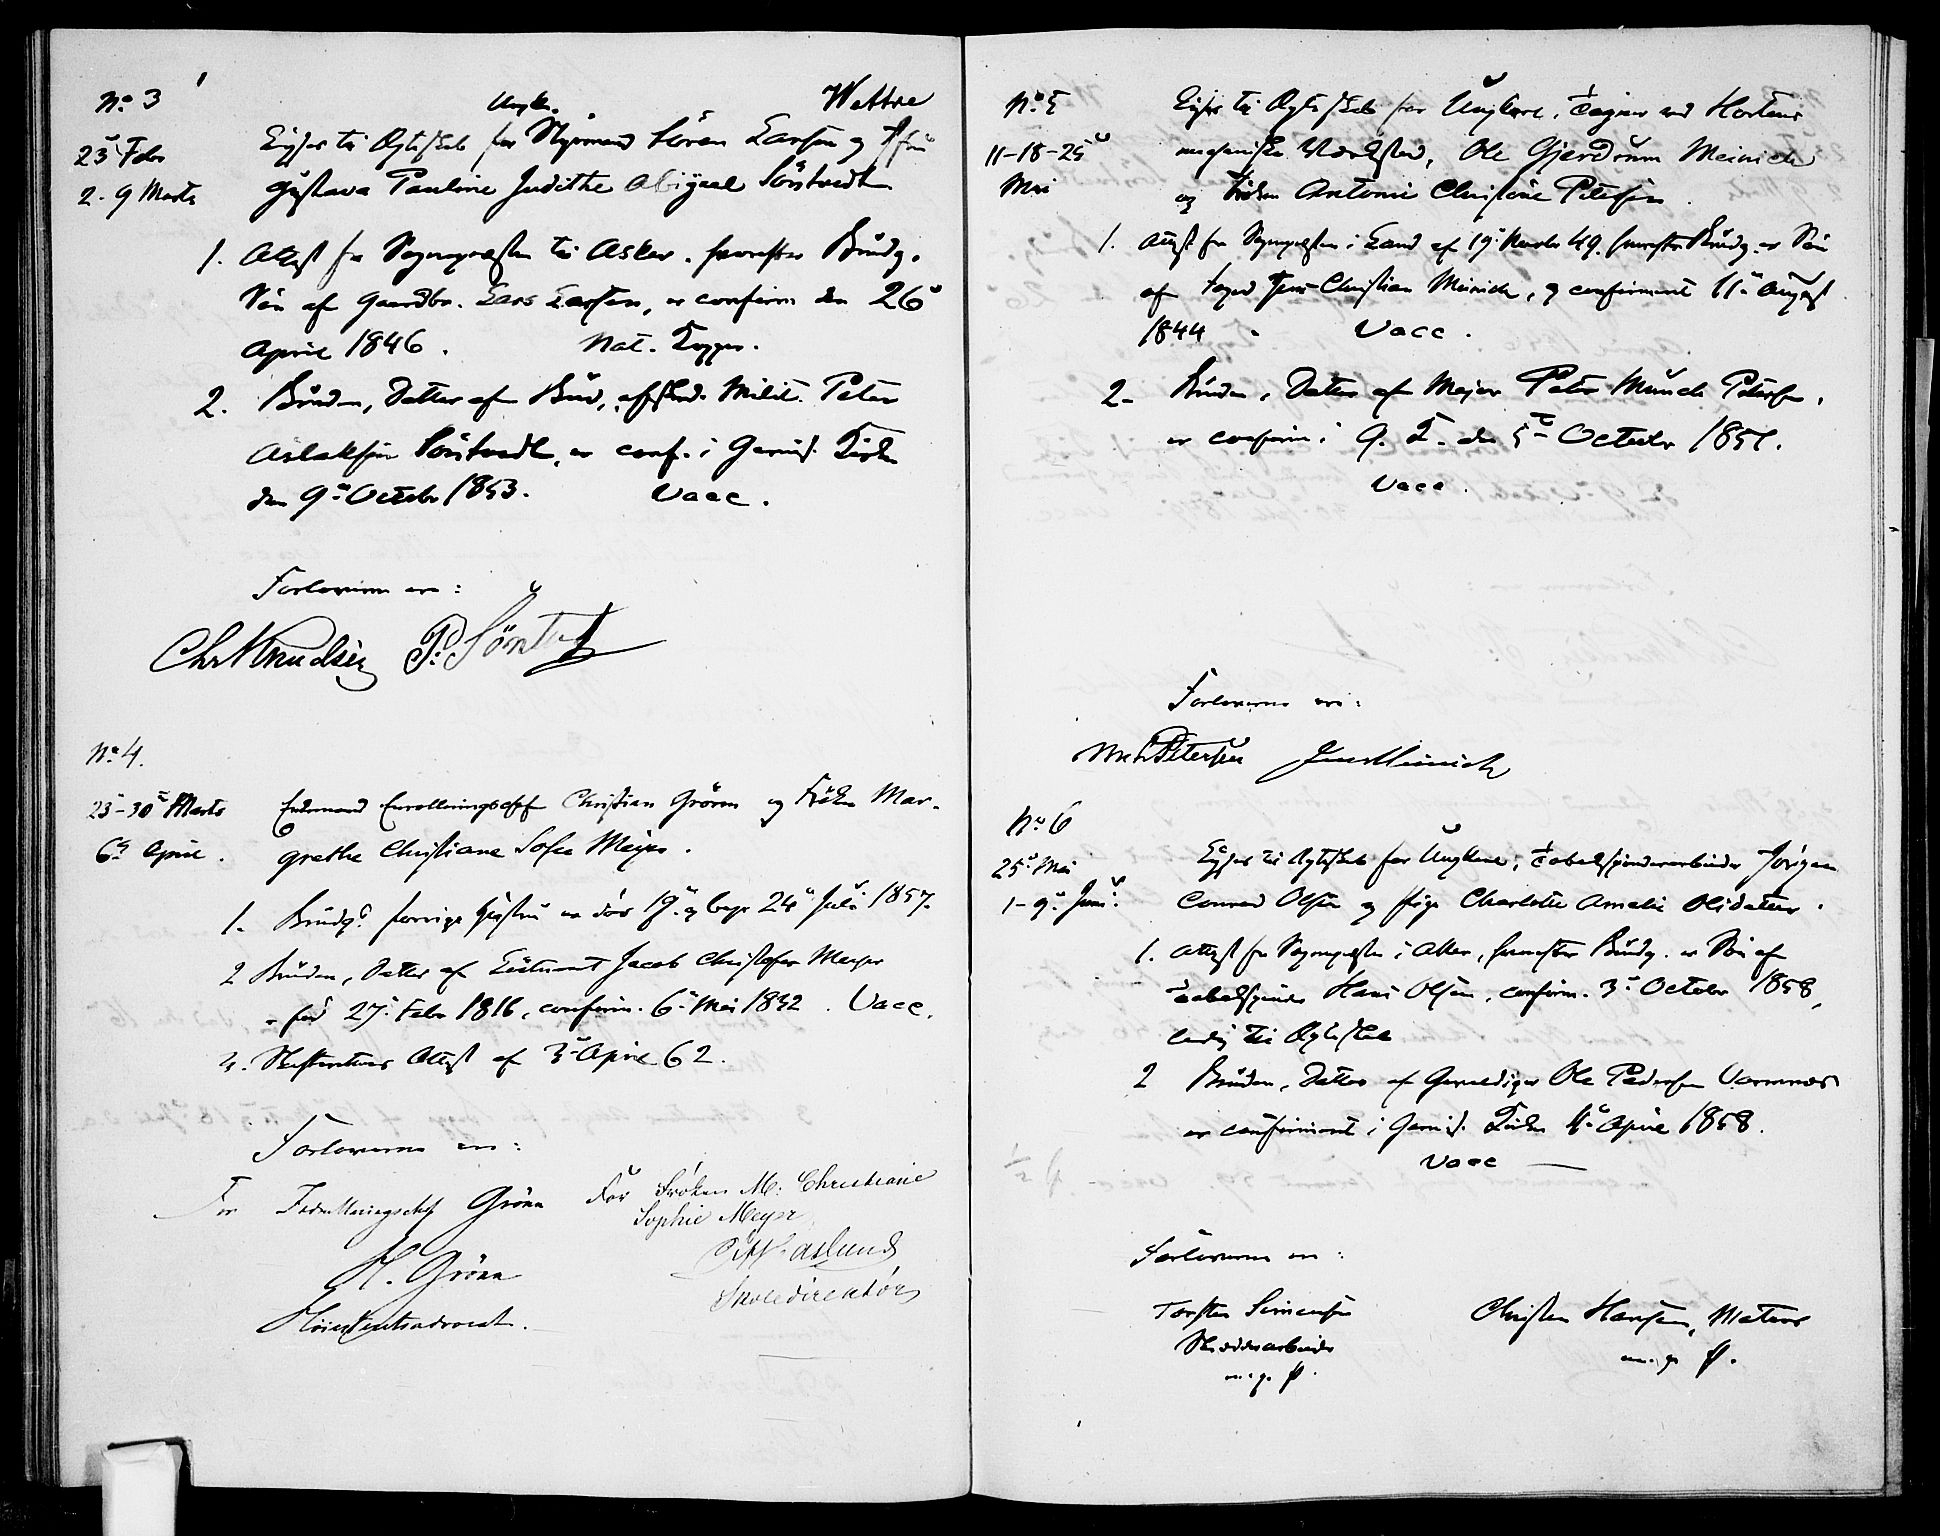 No 3
23 Febr
2. 9 Marts
Ungk. Wettre
Lyses til Ægteskab for Styrmand Sören Larsen og Jfru
Gustava Pauline Judithe Abigael Söntvedt
1. Attest fra Sognepræsten til Asker. hvorefter Brudg.
Sön af Gaardbr. Lars Larsen, er confirm den 26
April 1846. Nat. Kopper.
2. Bruden, Datter af Bud, afskd. Milit. Peter
Aslaksen Söntvedt, er conf. i Garnis. Kirke
den 9 Octobr 1853. Vacc.
Forloverne ere:
Chr Knudsen P. Söntvedt
No 4.
23-30 Marts
6 April.
Enkemand Enrolleringschef Christian Grönn og Fröken Mar-
grethe Christiane Sofie Meyer.
1. Brudgs. forrige Hustru er död 19 og begr 24 Juli 1857.
2 Bruden, Datter af Lieutenant Jacob Christofer Meyer
föd 27 Febr 1816, confirm. 6 Mai 1832. Vacc.
3. Skifterettens Attest af 3 April 62.
Forloverne ere:
For Indrulleringschef Grönn For Fröken M: Christiane
Sophie Meyer
H. Grönn
Höiesteretsadvocat.
Skoledirektör
No 5
11-18-25
Mai
Lyses til Ægteskab for Ungkarl, Tegner ved Hortens
mechaniske Værksted, Ole Gjerdrum Meinich
og Fröken Antonie Christine Petersen
1. Attest fra Sognepræsten i Land af 19 Novbr 49. hvorefter Brudg. er Sön
af Foged Jens Christian Meinich, og confirmeret 11 August
1844 - Vacc.
2- Bruden, Datter af Major Peter Munch Petersen,
er confirm i G. K. den 5 Octobr 1851.
Vacc.
Forloverne ere:
Petersen Jens Meinich
No 6
25 Mai
1-9 Juni.
Lyses til Ægteskab for Ungkarl, Tobakspinderarbeider Jörgen
Conrad Olsen og Pige Charlotte Amalie Olsdatter.
1. Attest fra Sognepræsten i Aker, hvorefter Brudg. er Sön af
Tobakspinder Hans Olsen, confirm. 3 October 1858,
ledig til Ægteskab
2 Bruden, Datter af Gevaldiger Ole Pedersen Varmnæs
er confirmeret i Garnis. Kirke 11 April 1858.
Vacc
Forloverne ere:
Torsten Simensen Christen Hansen, Matros
m. p. P. m. p. P.